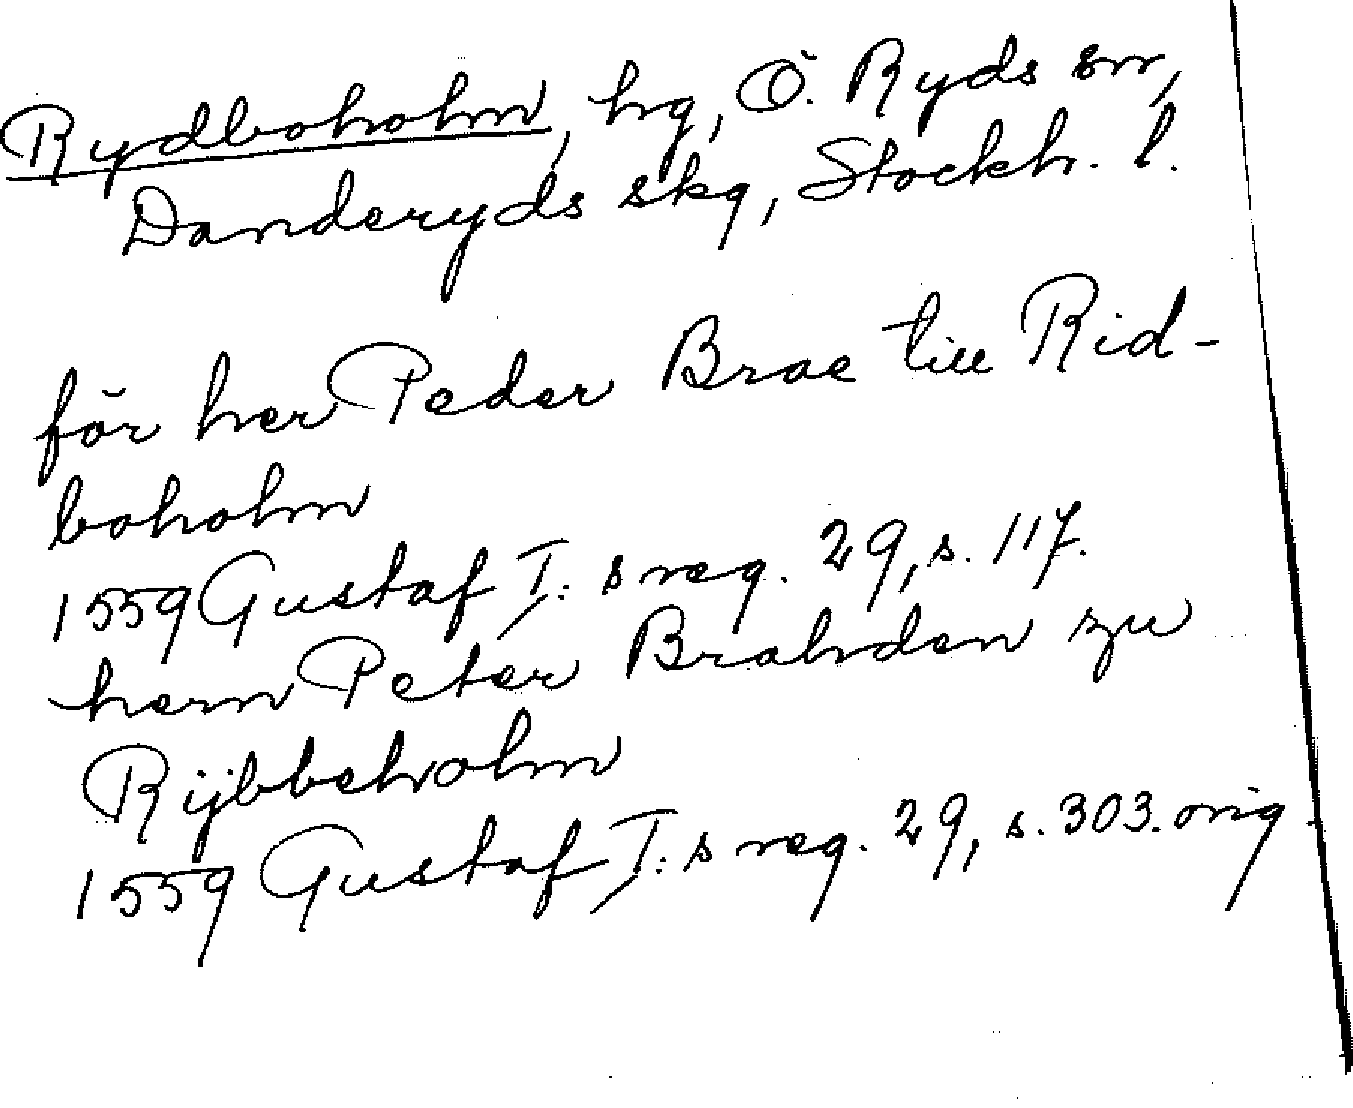 Rydboholm, hg, Ö. Ryds sn,
Danderyds skg, Stockh. l.
för her Peder Brae till Rid-
boholm
1559 Gustaf I:s reg. 29, s. 117.
hern Peter Brahden zu
Rijbbeholm
1559 Gustaf I:s reg. 29, s. 303. orig.